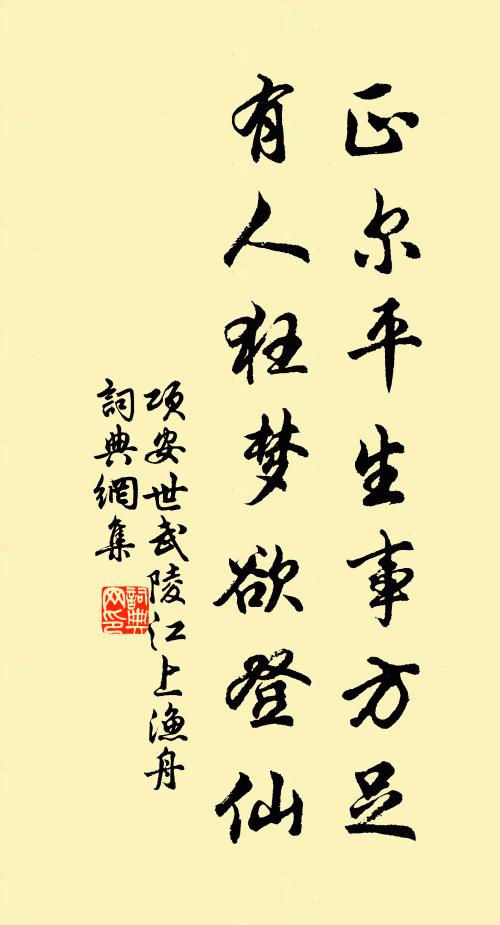 正尔平生事方足
有人狂梦欲登仙
项安世武陵江上渔舟
詞典網集
詞典
网印